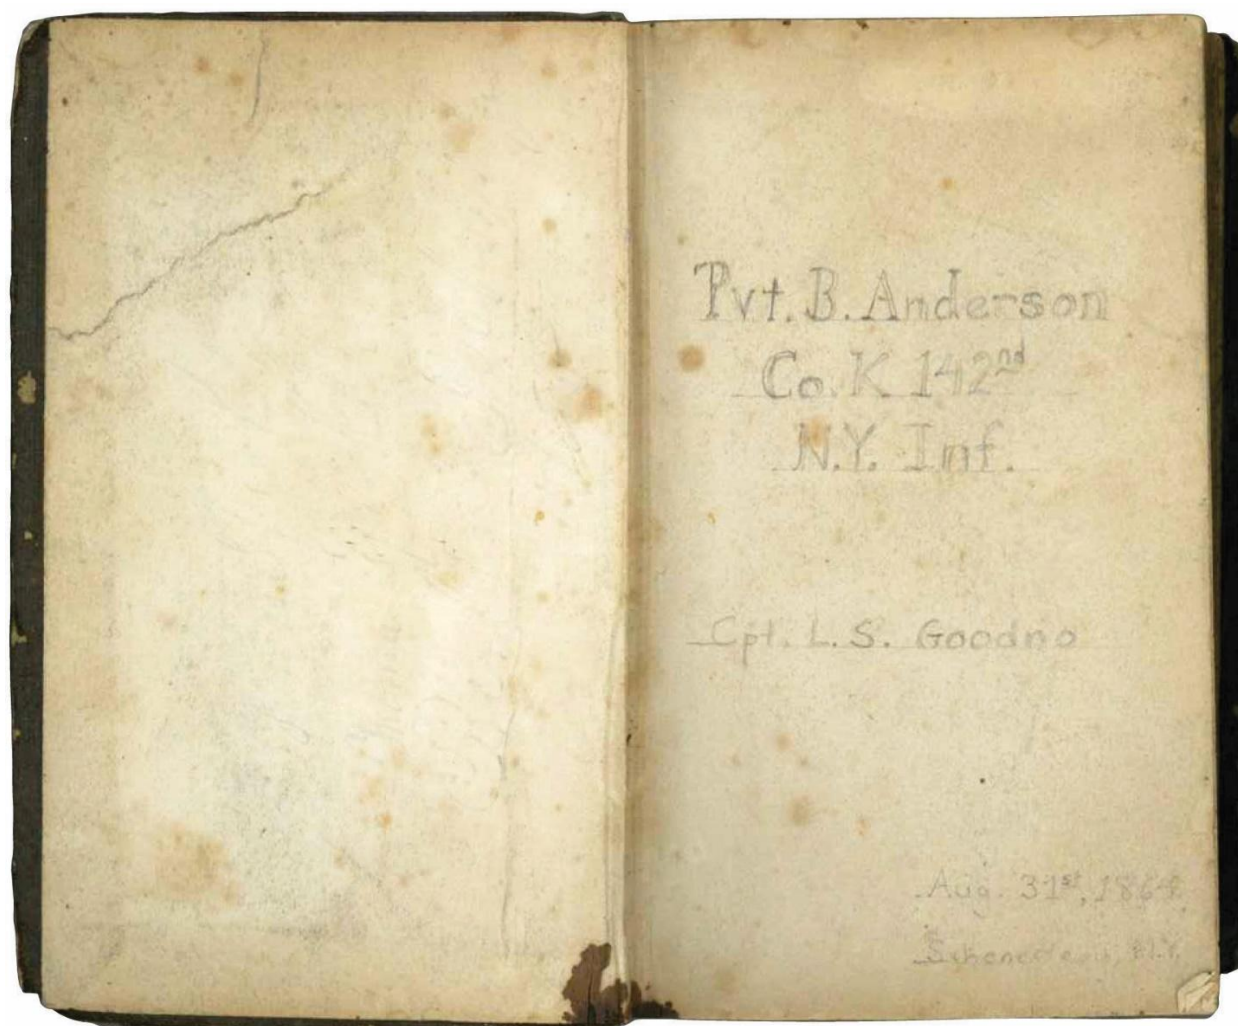 Pvt. B. Anderson
Co. K 142nd
N.Y. Inf.
Cpt. L. S. Goodno
Aug. 31st, 1864
N.Y.